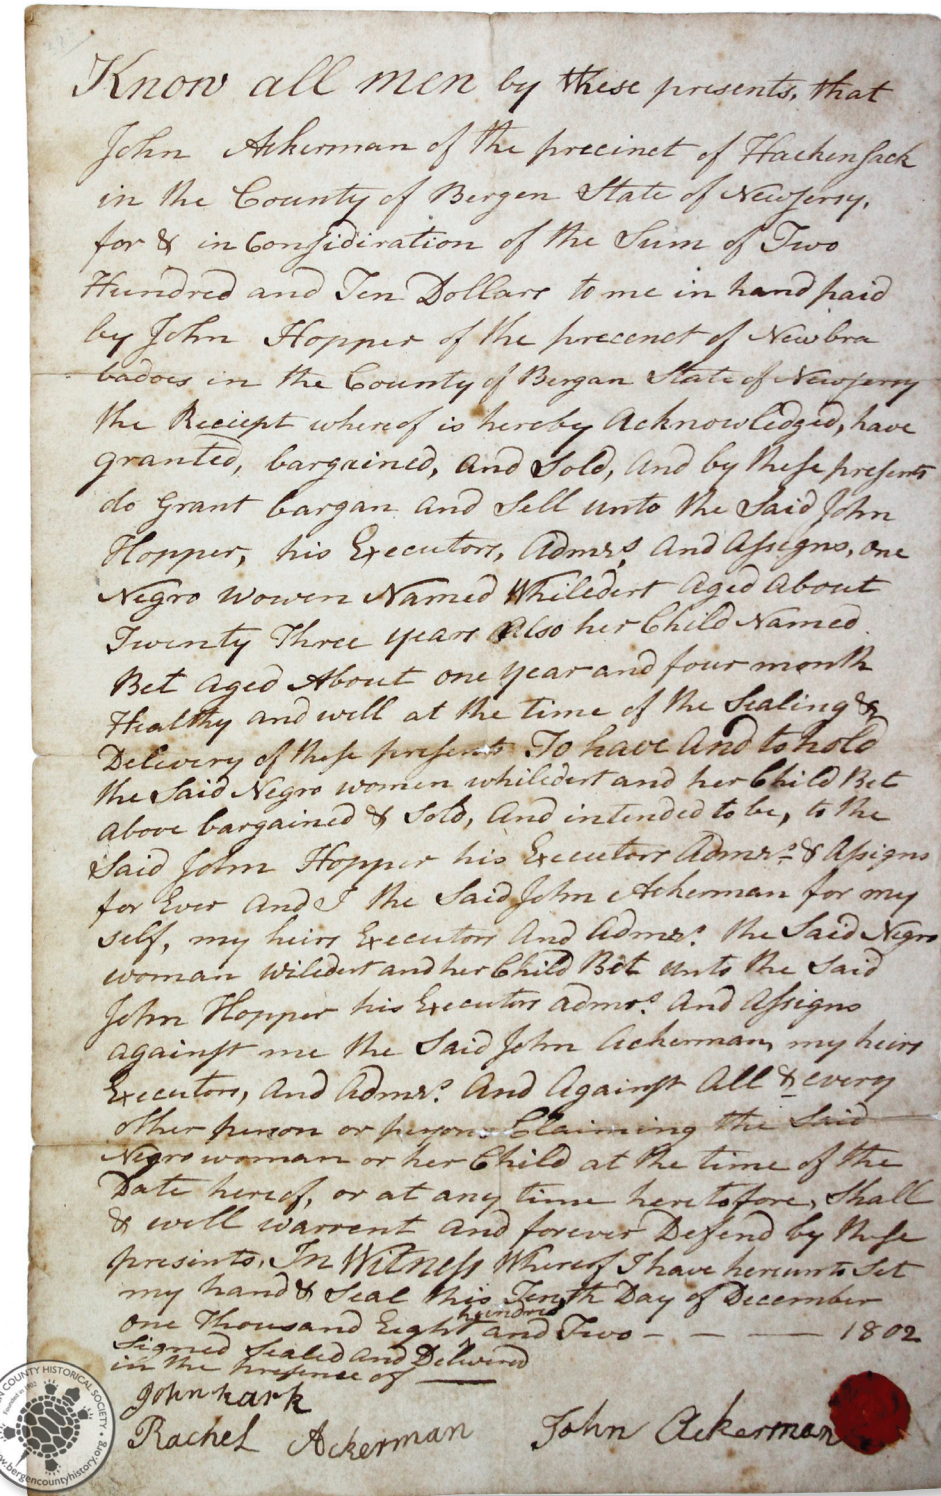 Know all men by these presents, that
John Ackerman of the precinct of Hackensack
in the County of Bergen State of NewJersy,
for & in Considiration of the Sum of Two
Hundred and Ten Dollars to me in hand paid
by John Hopper of the precenct of Newbra
badoes in the County of Bergan State of Newjersy
the Reciept whereof is hereby Acknowledged, have
granted, bargained, and Sold, And by these presents
do Grant bargan and Sell unto the Said John
Hopper, his Executors, Admrs and Assigns, one
Negro wowen Named Whiledert aged about
Twenty Three years Also her Child Named
Bet aged About one year and four month
Healthy and well at the time of the Sealing &
Delivery of these presents To have And to hold
the Said Negro women whiledert and her Child Bet
above bargained & Sold, And intended to be, to the
Said John Hopper his Executors Admrs & Assigns
for Ever And I the Said John Ackerman for my
self, my heirs Executors And Admrs. the Said Negro
woman wiledert and her Child Bet unto the Said
John Hopper his Executors admrs. And Assigns
against me the Said John Ackerman, my heirs
Executors, And Admrs. And Against All & every
other person or persons Claiming the Said
Negro woman or her Child at the time of the
Date hereof, or at any time heretofore, Shall
& will warrent and forever Defend by these
presints, In Witness Whereof I have hereunto Set
my hand & Seal this Tenth Day of December
one Thousand Eight hundred and Two — — — 1802
Signed Sealed and Delivered
in the presence of
John kark
Rachel Ackerman John Ackerman
COUNTY HISTORICAL SOCIETY
Founded in 1902
.bergencountyhistory.org